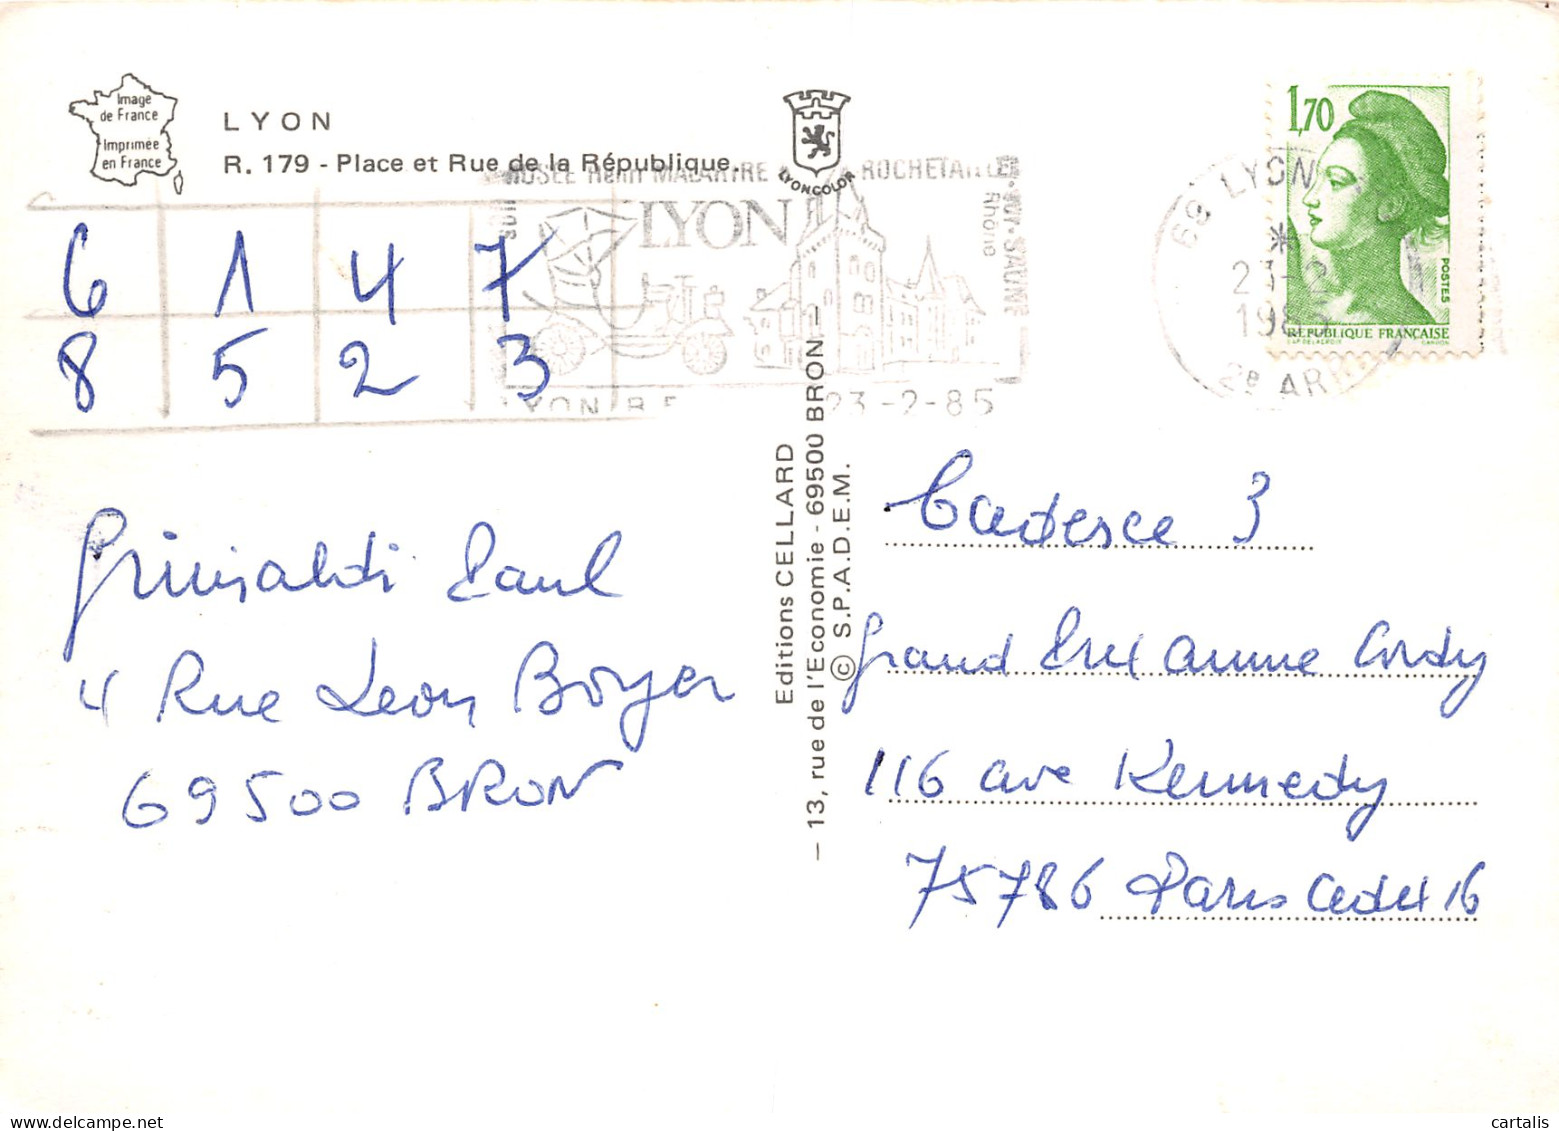 Image
de France
Imprimée
en France
LYON
R. 179 - Place et Rue de la République.
6 1 4 7
8 5 2 3
Grimaldi Paul
4 Rue Leon Boyer
69500 BRON
LYONCOLOR
MUSÉE Henri MALARTRE
ROCHETAILLÉE
LYON
Rhône
23-2-85
Editions CELLARD
- 13, rue de l'Economie - 69500 BRON -
© S.P.A.D.E.M.
1,70
POSTES
RÉPUBLIQUE FRANÇAISE
69 LYON
23-2
1985
2e ARR
3
grand Anne Cordy
116 ave Kennedy
75786 Paris Cedex 16
cartalis